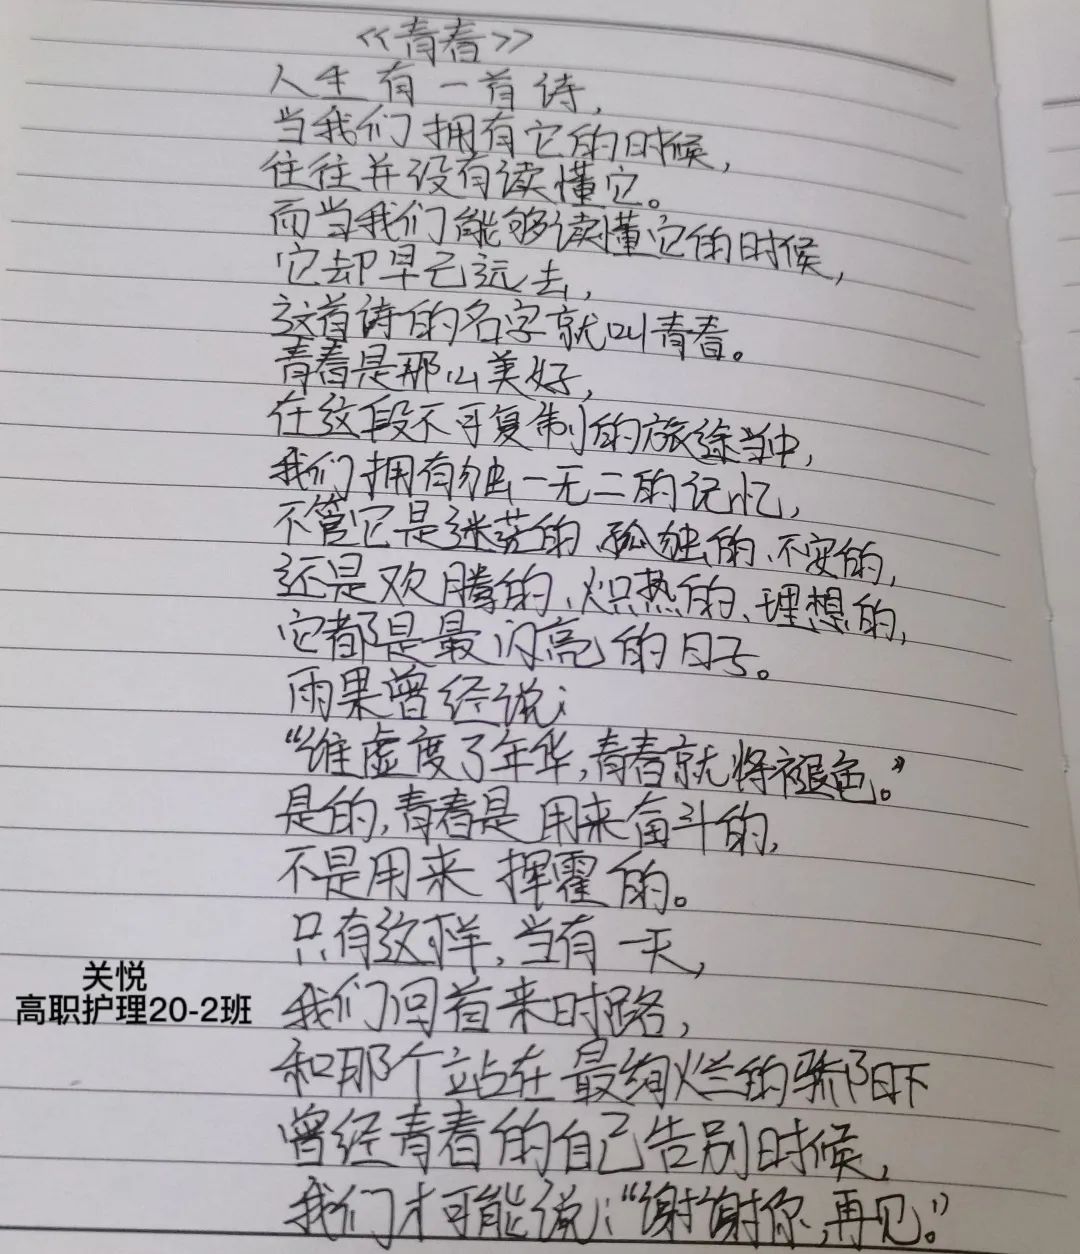 《青春》
人生有一首诗，
当我们拥有它的时候，
往往并没有读懂它。
而当我们能够读懂它的时候，
它却早已远去，
这首诗的名字就叫青春。
青春是那么美好，
在这段不可复制的旅途当中，
我们拥有独一无二的记忆，
不管它是迷茫的、孤独的、不安的，
还是欢腾的、炽热的、理想的，
它都是最闪亮的日子。
雨果曾经说：
“谁虚度了年华，青春就将褪色。”
是的，青春是用来奋斗的，
不是用来挥霍的。
只有这样，当有一天，
我们回首来时路，
和那个站在最绚烂的骄阳下
曾经青春的自己告别时候，
我们才可能说：“谢谢你，再见。”
关悦
高职护理20-2班